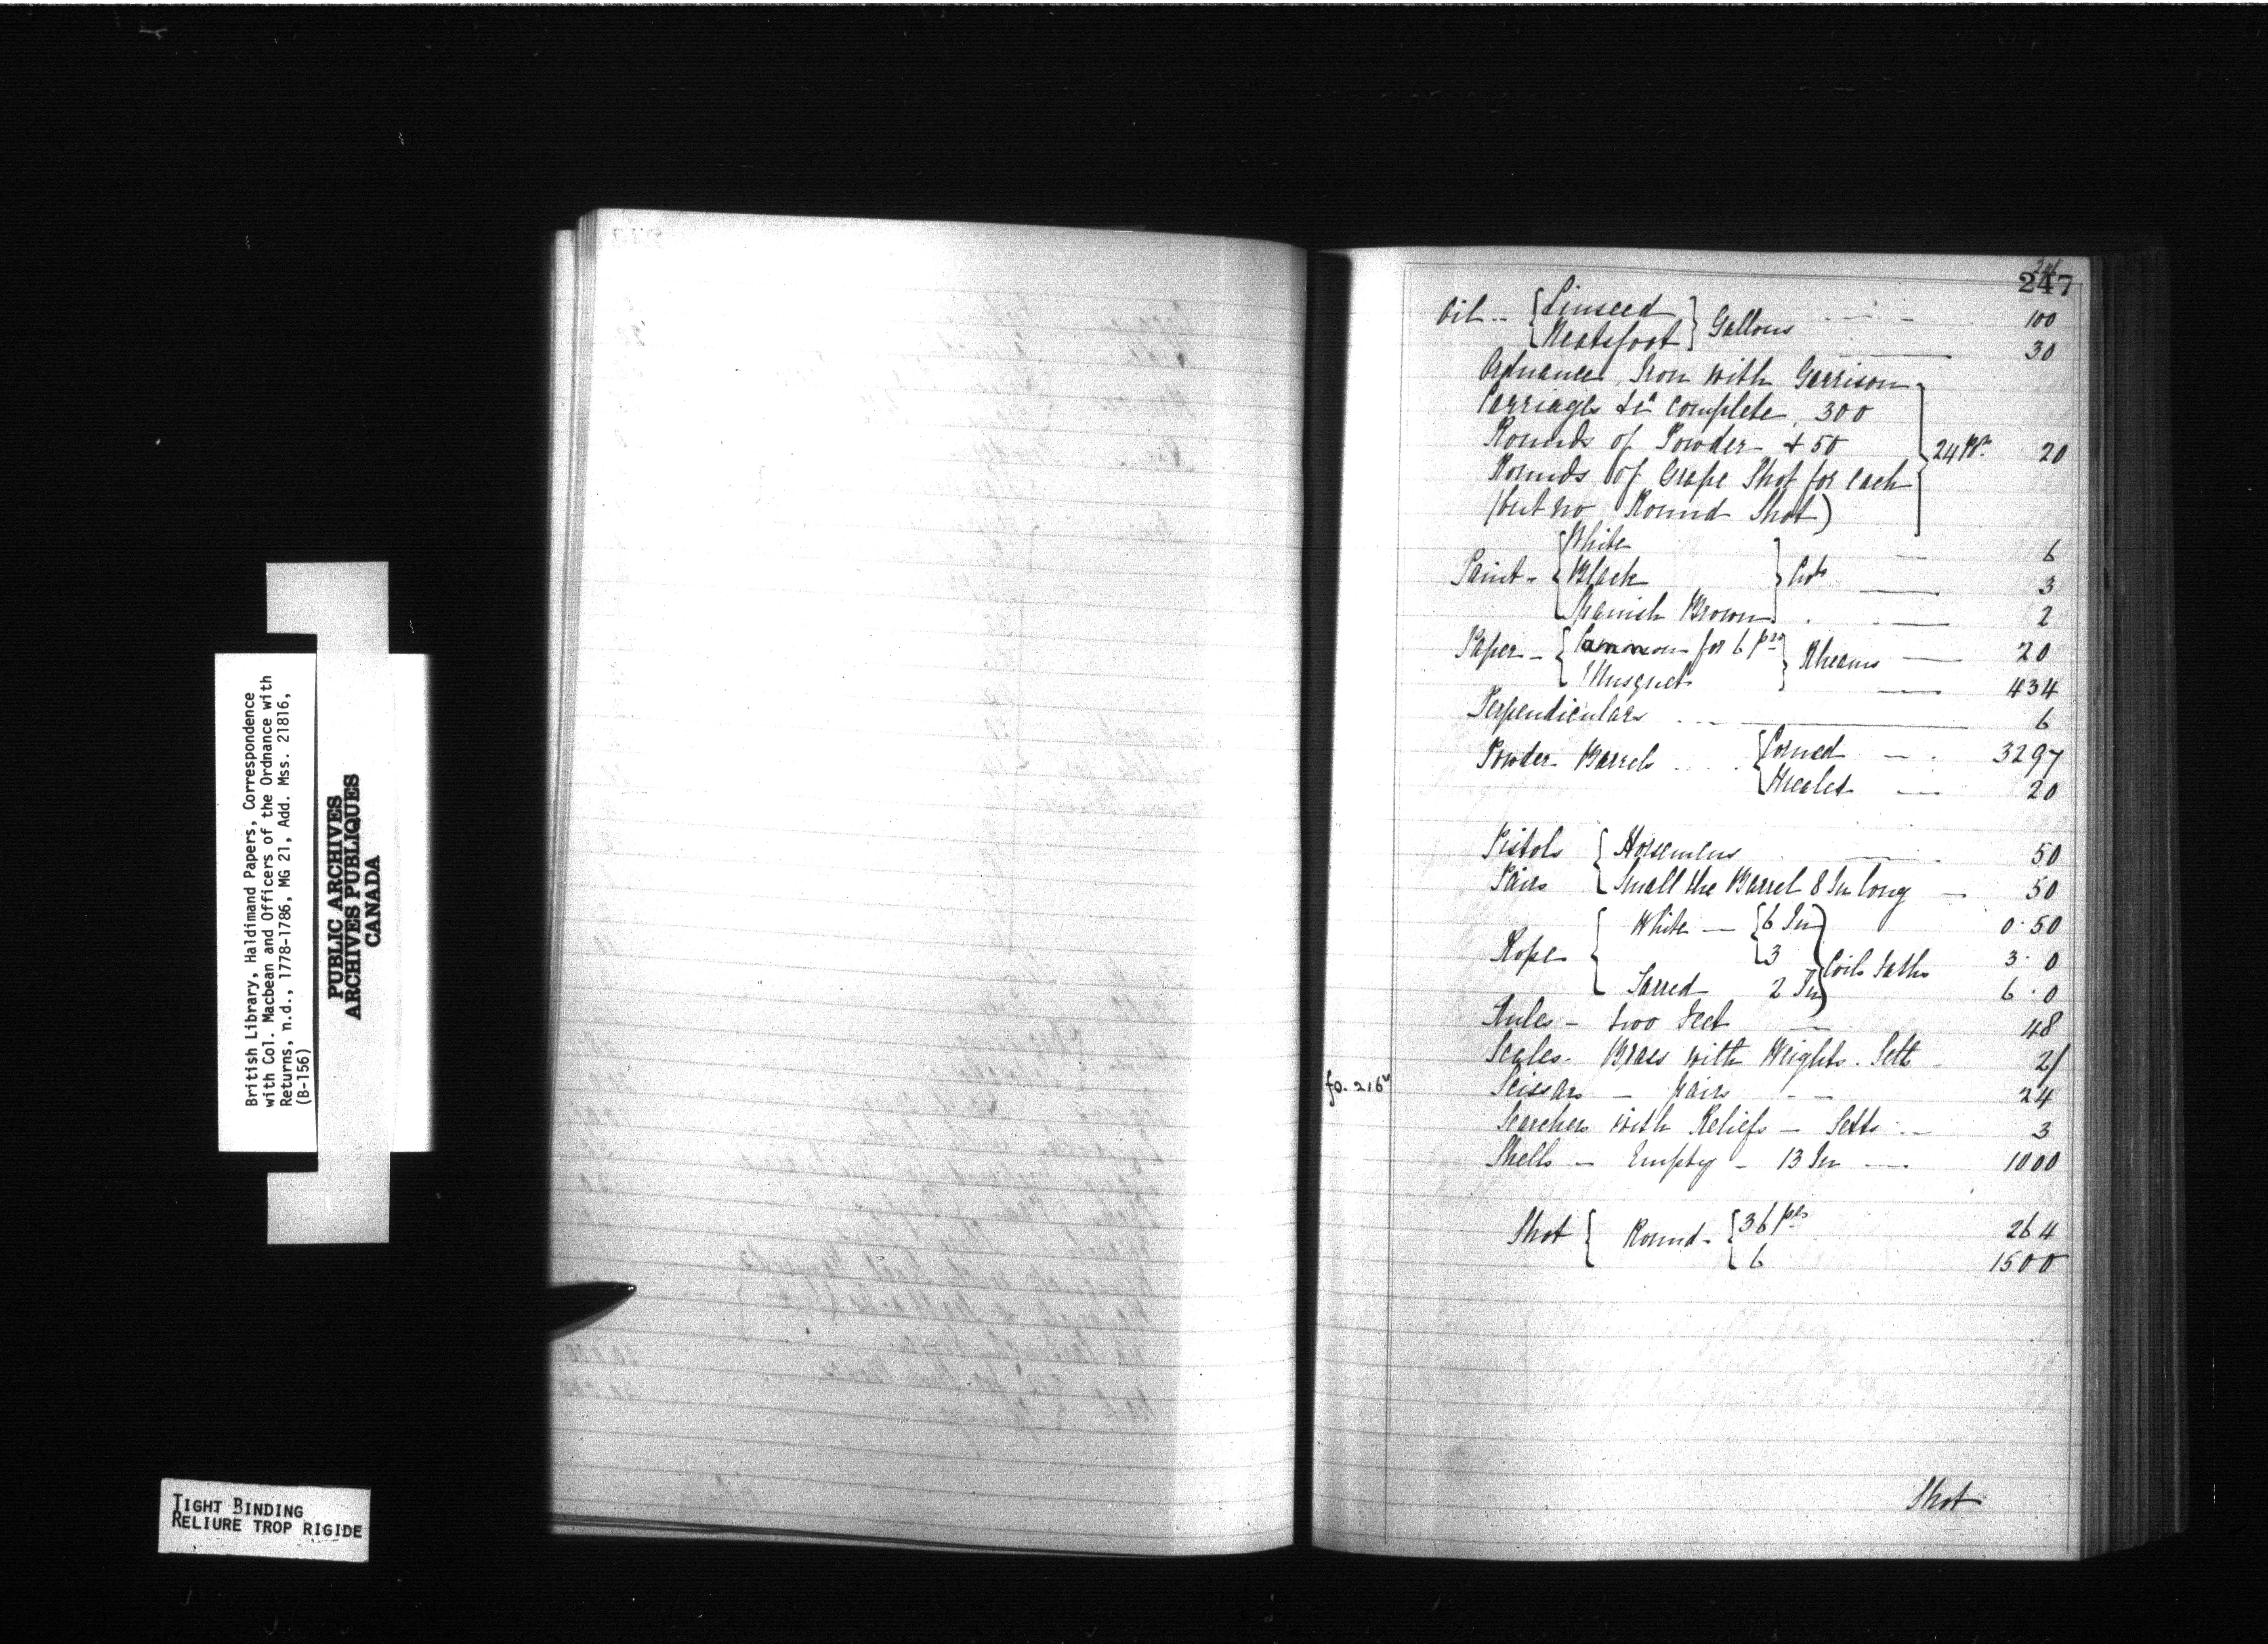 British Library, Haldimand Papers, Correspondence
with Col. Macbean and Officers of the Ordnance with
Returns, n.d., 1778-1786, MG 21, Add. Mss. 21816,
(B-156)
PUBLIC ARCHIVES
ARCHIVES PUBLIQUES
CANADA
TIGHT BINDING
RELIURE TROP RIGIDE
247
Oil -- { Linseed } Gallons 100
{ Neatsfoot } 30
Ordnance, Iron with Garrison
Carriages &c complete, 300
Rounds of Powder & 50 } 24 Prs. 20
Rounds of Grape Shot for each
(but no Round Shot)
{ White 6
Paint - { Black } Cwts 3
{ Spanish Brown 2
Paper - { Cannon for 6 prs } Rheams 20
{ Musquet 434
Perpendiculars 6
Powder Barrels { Corned 3297
{ Mealed 20
Pistols { Horsemens 50
Pairs { Small the Barrel 8 In long 50
White - { 6 In 0.50
Rope { 3 } Coils Faths 3.0
Tarred 2 In 6.0
Rules - two Feet 48
Scales - Brass with Weights. Sett 2
fo. 216v
Scissars - pairs 24
Searchers with Reliefs - Setts 3
Shells - Empty - 13 In 1000
Shot { Round - { 36 prs 264
{ 6 1500
Shot